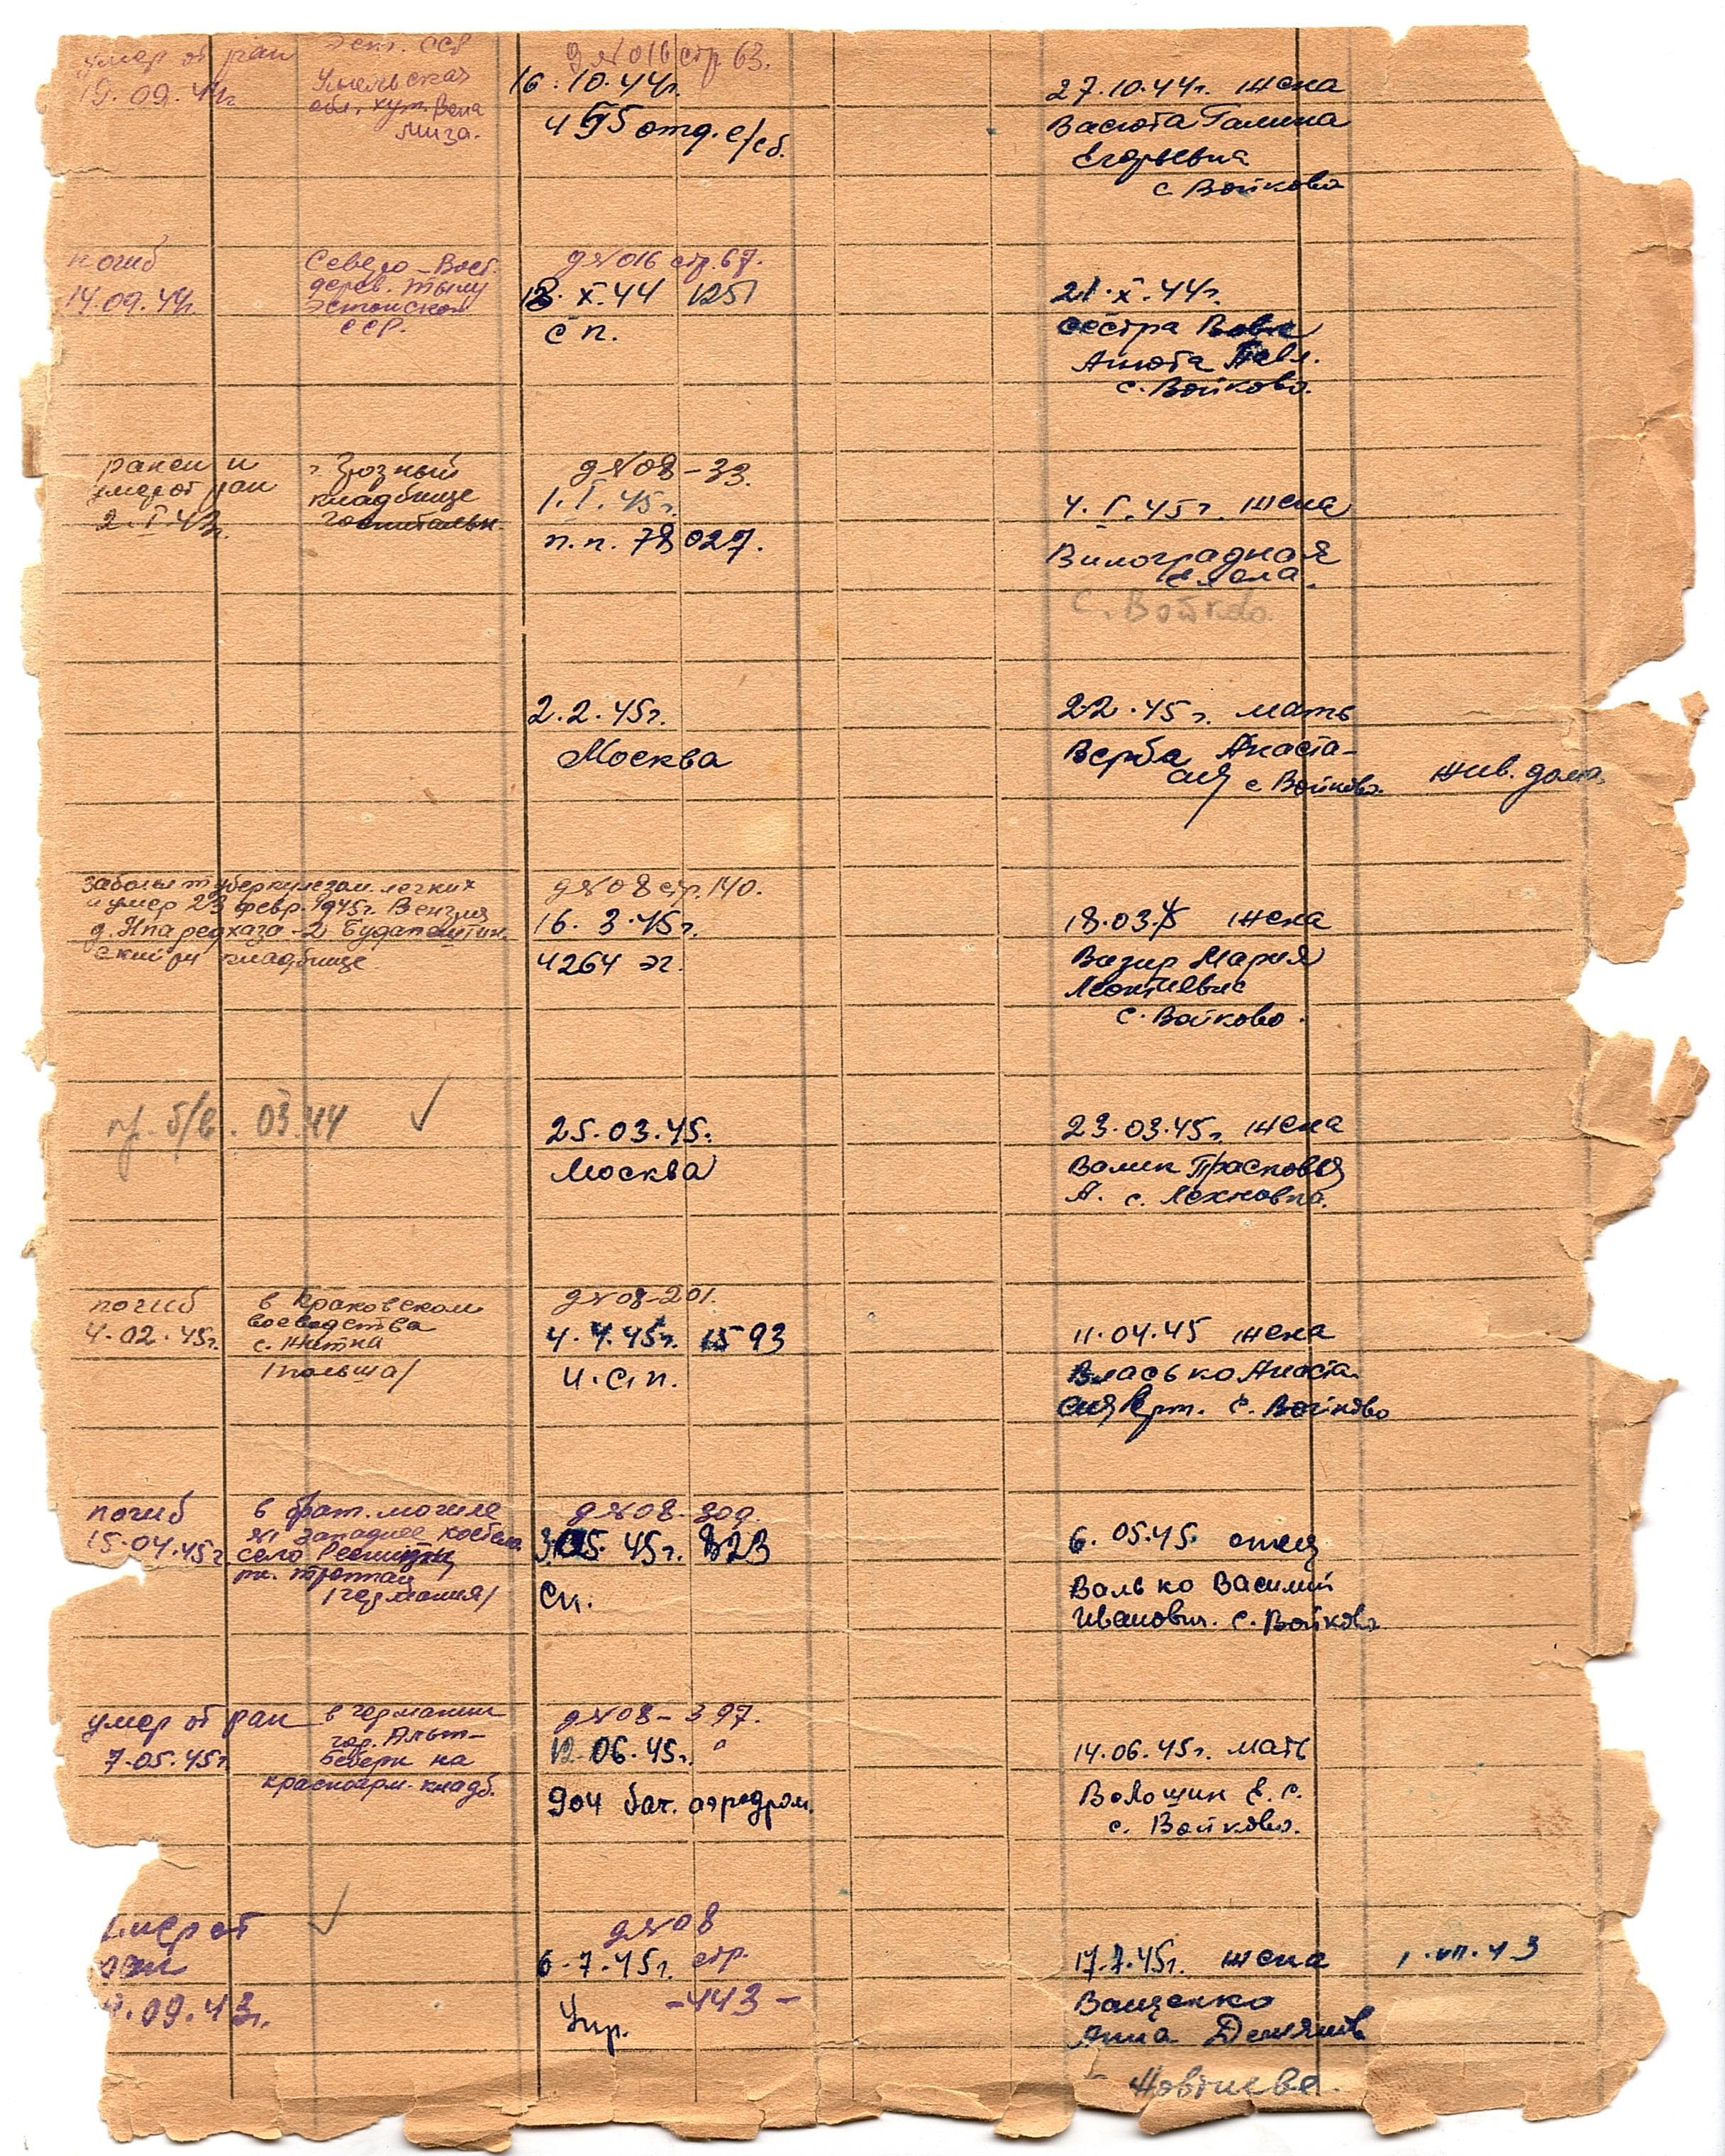 умер от ран
19.09.44г.
Эст. ССР
обл. хут.
д №016 стр 63.
16.10.44г.
отд. с/сб.
27.10.44г. жена
Васюта Галина
Егорьевна
с Войково
погиб
14.09.44г.
Северо-Вост.
дерев.
Эстонской
ССР.
д №016 стр. 67.
X.44 1251
сп.
21.X.44г.
сестра
Анюта Павл.
с. Войково.
ранен и
умер от ран
2.I.43г.
г Грозный
кладбище
госпитальн.
д №08-33.
1.I.45г.
п.п. 78027.
4.I.45г. жена
Виноградная
с. Войково
2.2.45г.
Москва
22.45г. мать
Верба Анаста-
сия с Войково.
жив. дома
заболел туберкулезом легких
и умер 23 февр. 1945г. Венгрия
д. 2 Будапештин
ский рн кладбище.
д №08 стр. 140.
16.3.45г.
4264 эг.
18.03.45 жена
Вазир Мария
Леонтьевна
с. Войково.
пр. б/в. 03.44 ✓
25.03.45.
Москва
23.03.45г. жена
Волик Прасковья
А. с. Лехновка.
погиб
4.02.45г.
в Краковском
воеводства
с. Житна
/польша/
д №08-201.
4.4.45г. 1593
и.с.п.
11.04.45 жена
Власько Анаста-
сия с. Войково
погиб
15.04.45г.
в брат. могиле
западнее костела
село
/германия/
д №08-309.
05.45г. 823
сп.
6.05.45. отец
Валько Василий
Иванович. с. Войково
умер от ран
7.05.45г.
в германии
гор. Альт-
беберн на
красноарм. кладб.
д №08-397.
12.06.45г. "
904 бат. аэродром.
14.06.45г. мать
Волошин Е.С.
с. Войково.
умер от
ран
.09.43г.
✓
д №08
6.7.45г. стр.
-443-
17.7.45г. жена
Ващенко
Анна Демянов